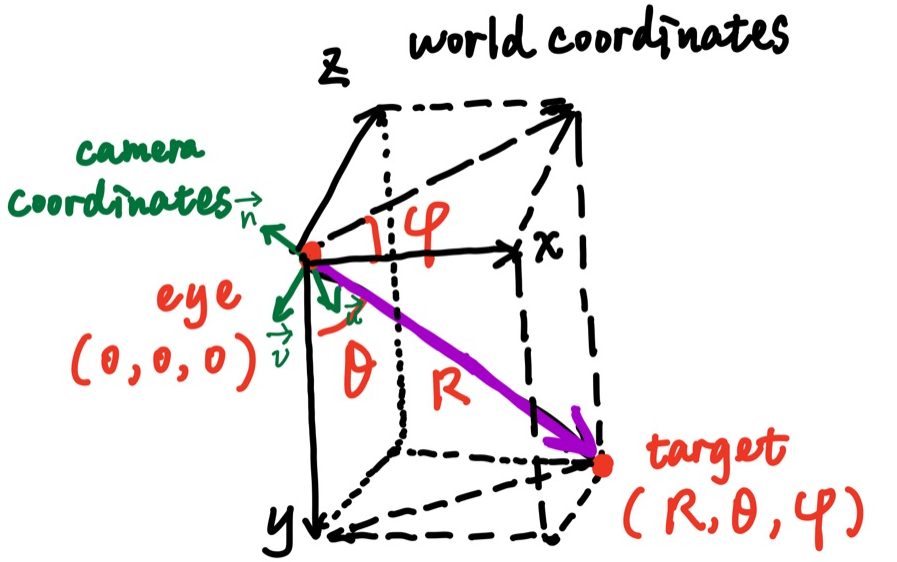 world coordinates
z
camera
coordinates
n
φ
x
eye
u
v
(0,0,0)
θ
R
target
y
(R,θ,φ)